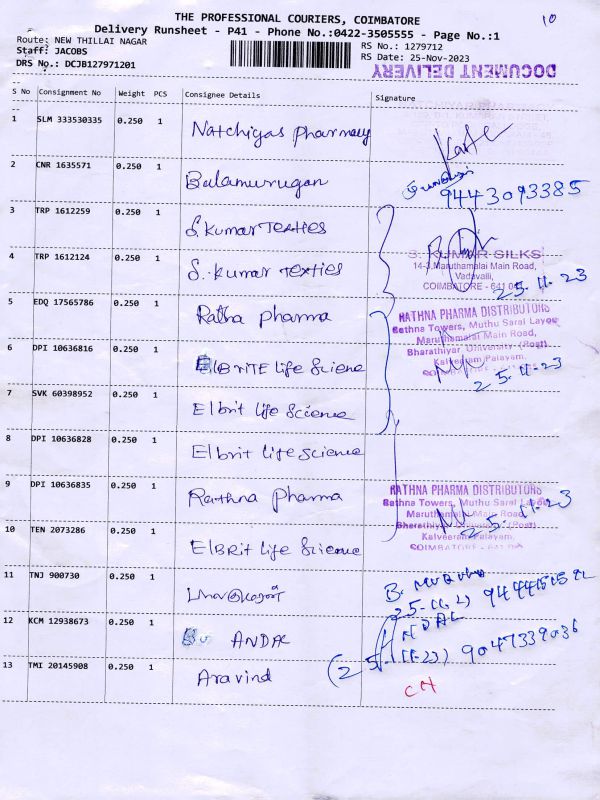 THE PROFESSIONAL COURIERS, COIMBATORE
10
Delivery Runsheet - P41 - Phone No.:0422-3505555 - Page No.:1
Route: NEW THILLAI NAGAR
RS No.: 1279712
Staff: JACOBS
RS Date: 25-Nov-2023
DRS No.: DCJB127971201
DOCUMENT DELIVERY
S No Consignment No Weight PCS Consignee Details Signature
1 SLM 333530335 0.250 1 Natchiyas pharmacy
2 CNR 1635571 0.250 1 Balamurugan
9443093385
3 TRP 1612259 0.250 1 S.Kumar Textles
4 TRP 1612124 0.250 1 S.Kumar Texties
S. KUMAR SILKS
14-3,Maruthamalai Main Road,
Vadavalli,
COIMBATORE - 641 0
25.11.23
5 EDQ 17565786 0.250 1 Ratha pharma
RATHNA PHARMA DISTRIBUTORS
Rathna Towers, Muthu Sarai Layout
Maruthamalai Main Road,
Bharathiyar University (Post)
Kalveeram Palayam,
25.11.23
6 DPI 10636816 0.250 1 ELBRITE Life Sciene
7 SVK 60398952 0.250 1 Elbrit life Science
8 DPI 10636828 0.250 1 Elbrit life science
9 DPI 10636835 0.250 1 Rathna Pharma
RATHNA PHARMA DISTRIBUTORS
Rathna Towers, Muthu Sarai Layout
Maruthamalai Main Road,
Bharathiyar University (Post)
Kalveeram Palayam,
COIMBATORE
25.11.23
10 TEN 2073286 0.250 1 ELBRit Life Science
11 TNJ 900730 0.250 1
12 KCM 12938673 0.250 1 ANDAL
NDAL
13 TMI 20145908 0.250 1 Aravind
(25.11.23) 9047339036
CH